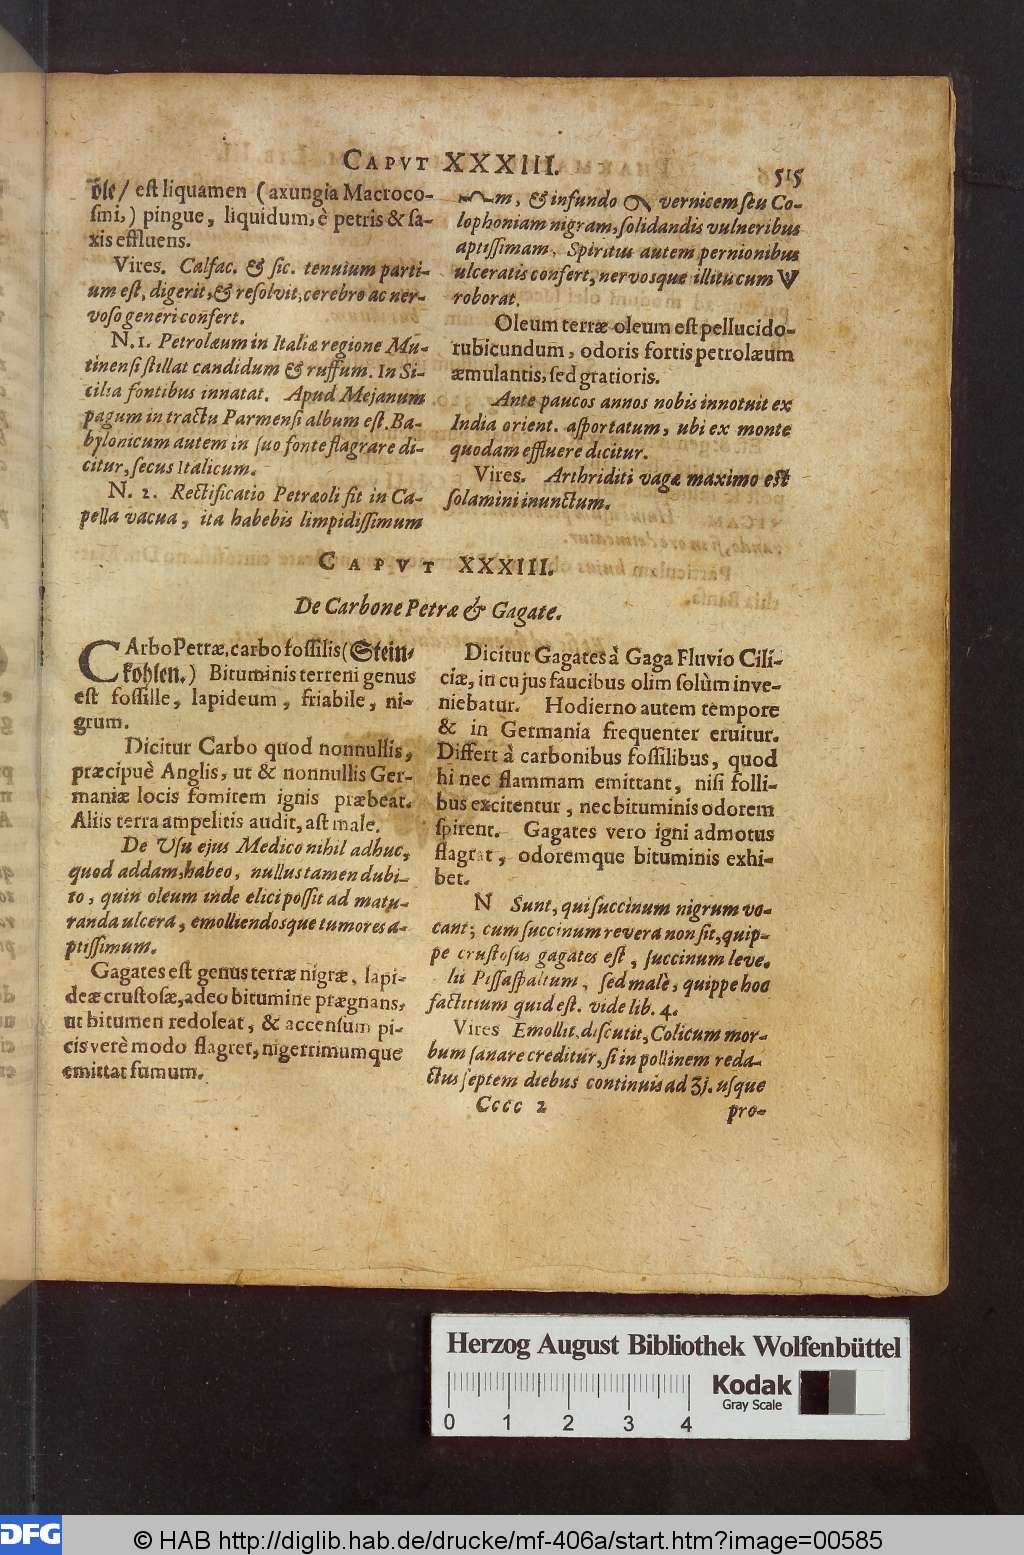 CAPVT XXXIII. 515
ole/ est liquamen (axungia Macroco-
smi,) pingue, liquidum, è petris & sa-
xis effluens.
Vires. Calfac. & sic. tenuium parti-
um est, digerit, & resolvit, cerebro ac ner-
voso generi confert.
N. 1. Petrolæum in Italiæ regione Mu-
tinensi stillat candidum & ruffum. In Si-
cilia fontibus innatat. Apud Mejanum
pagum in tractu Parmensi album est. Ba-
bylonicum autem in suo fonte flagrare di-
citur, secus Italicum.
N. 2. Rectificatio Petræoli fit in Ca-
pella vacua, ita habebis limpidissimum
m, & infundo vernicem seu Co-
lophoniam nigram, solidandis vulneribus
aptissimam. Spiritus autem pernionibus
ulceratis confert, nervosque illitu cum
roborat.
Oleum terræ oleum est pellucido-
rubicundum, odoris fortis petrolæum
æmulantis, sed gratioris.
Ante paucos annos nobis innotuit ex
India orient. asportatum, ubi ex monte
quodam effluere dicitur.
Vires. Arthriditi vagæ maximo est
solamini inunctum.
CAPVT XXXIII.
De Carbone Petræ & Gagate.
CArbo Petræ, carbo fossilis (Stein-
kohlen.) Bituminis terreni genus
est fossile, lapideum, friabile, ni-
grum.
Dicitur Carbo quod nonnullis,
præcipuè Anglis, ut & nonnullis Ger-
maniæ locis fomitem ignis præbeat.
Aliis terra ampelitis audit, ast male.
De Usu ejus Medico nihil adhuc,
quod addam, habeo, nullus tamen dubi-
to, quin oleum inde elici possit ad matu-
randa ulcera, emolliendosque tumores a-
ptissimum.
Gagates est genus terræ nigræ, lapi-
deæ crustosæ, adeo bitumine prægnans,
ut bitumen redoleat, & accensum pi-
cis verè modo flagret, nigerrimumque
emittat fumum.
Dicitur Gagates à Gaga Fluvio Cili-
ciæ, in cujus faucibus olim solùm inve-
niebatur. Hodierno autem tempore
& in Germania frequenter eruitur.
Differt à carbonibus fossilibus, quod
hi nec flammam emittant, nisi folli-
bus excitentur, nec bituminis odorem
spirent. Gagates vero igni admotus
flagrat, odoremque bituminis exhi-
bet.
N Sunt, qui succinum nigrum vo-
cant; cum succinum revera non sit, quip-
pe crustosus gagates est, succinum leve.
Ii Pissasphaltum, sed malè, quippe hoc
factitium quid est. vide lib. 4.
Vires Emollit, discutit, Colicum mor-
bum sanare creditur, si in pollinem reda-
ctus septem diebus continuis ad ʒj. usque
Cccc 2 pro-
Herzog August Bibliothek Wolfenbüttel
Kodak
Gray Scale
0 1 2 3 4
DFG
© HAB http://diglib.hab.de/drucke/mf-406a/start.htm?image=00585